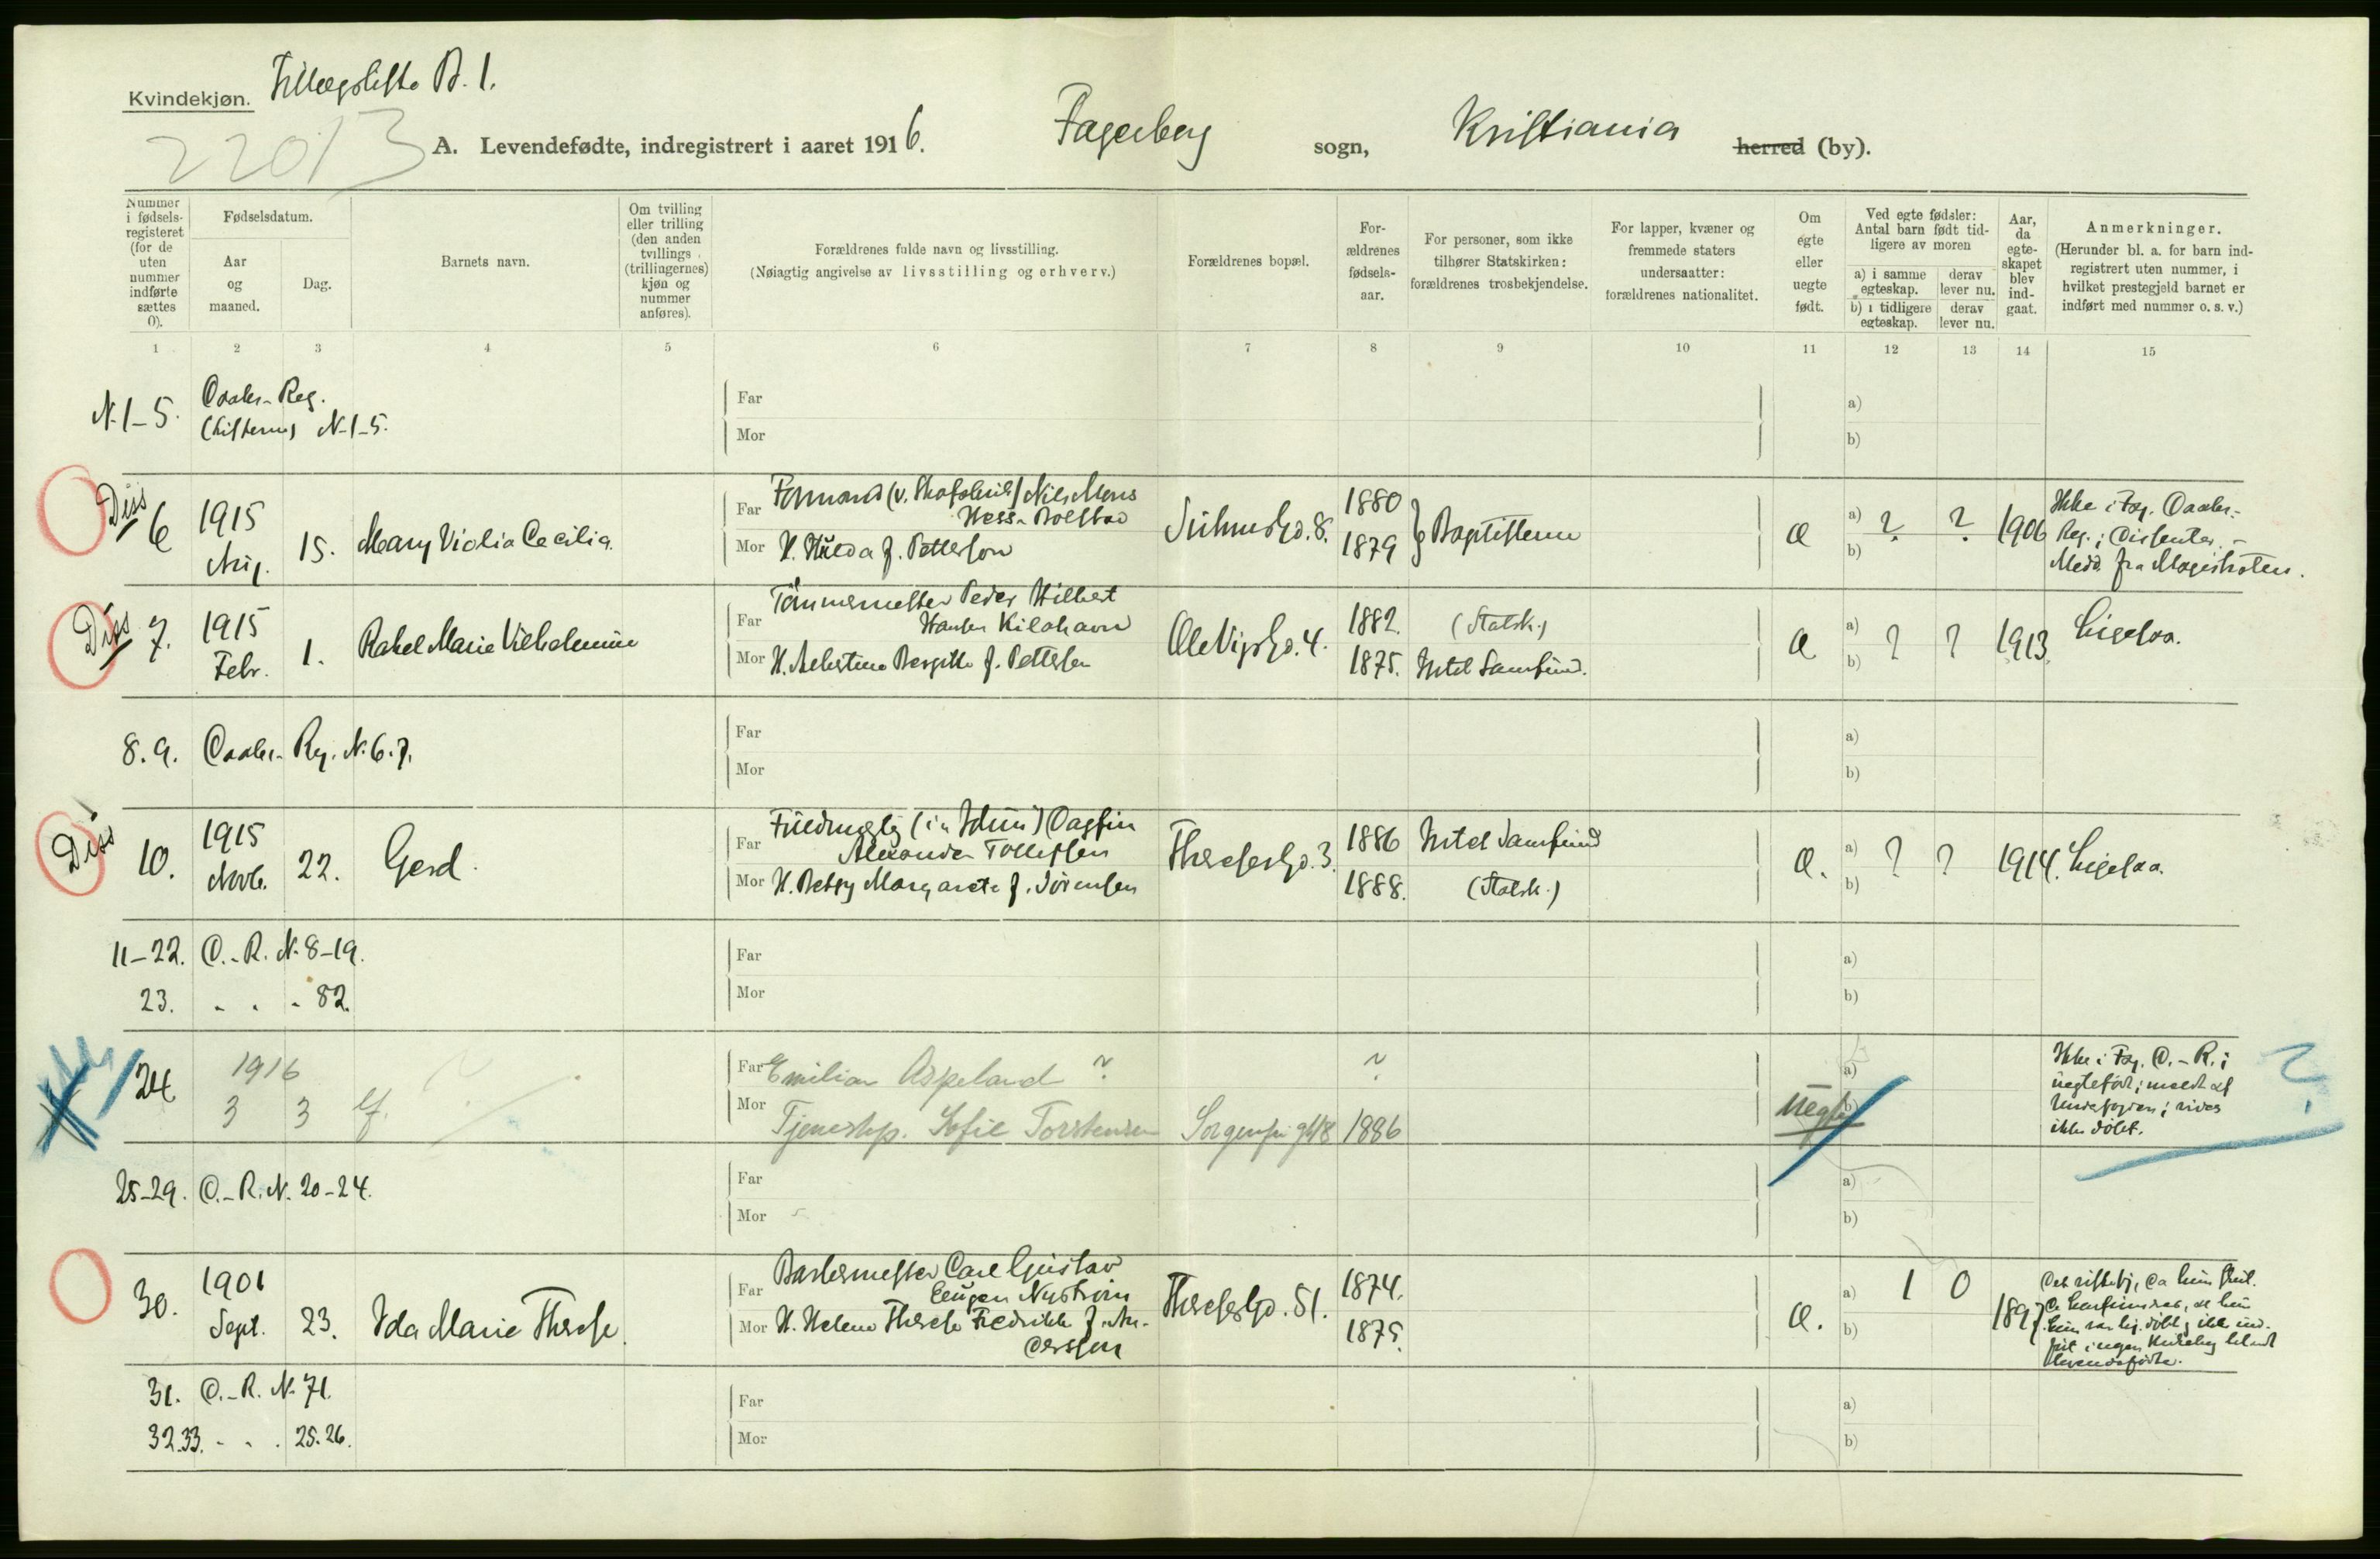 Kvindekjøn.
Tillægsliste B. 1.
22013
A. Levendefødte, indregistrert i aaret 1916.
Fagerborg sogn, Kristiania herred (by).
Nummer i fødsels-registeret (for de uten nummer indførte sættes 0).
Fødselsdatum.
Aar og maaned.
Dag.
Barnets navn.
Om tvilling eller trilling (den anden tvillings (trillingernes) kjøn og nummer anføres).
Forældrenes fulde navn og livsstilling.
(Nøiagtig angivelse av livsstilling og erhverv.)
Forældrenes bopæl.
For-ældrenes fødsels-aar.
For personer, som ikke tilhører Statskirken: forældrenes trosbekjendelse.
For lapper, kvæner og fremmede staters undersaatter: forældrenes nationalitet.
Om egte eller uegte født.
Ved egte fødsler: Antal barn født tid-ligere av moren
a) i samme egteskap.
derav lever nu.
b) i tidligere egteskap.
derav lever nu.
Aar, da egte-skapet blev ind-gaat.
Anmerkninger.
(Herunder bl. a. for barn ind-registrert uten nummer, i hvilket prestegjeld barnet er indført med nummer o. s. v.)
1 2 3 4 5 6 7 8 9 10 11 12 13 14 15
N. 1-5. Daabs-Reg. N. 1-5.
Far a)
Mor b)
Diss 6 1915 Aug. 15. Mary Viola Cecilia.
Far Formand Nils Mons
Mor H. Hulda f. Petterson
8. 1880 1879 Baptisterne Æ a) ? ? b) 1906
Ikke i Fag. Daabs-
Reg.; Dissenter.-
Medd. fra Magistraten.
Diss 7. 1915 Febr. 1. Rakel Marie Vilhelmine
Far Tømmermester Peder Hilbert
Hansen
Mor H. f. Pettersen
Ole Vigsgd. 4. 1882. (Statsk.)
1875. Metod Samfund. Æ a) b) ? ? 1913. Ligesaa.
8. 9. Daabs-Reg. N. 6. 7.
Far a)
Mor b)
Diss 10. 1915 Novb. 22. Gerd.
Far Dagfin
Alexander Tollefsen
Mor H. Betsy Margarete f. Sørensen
Theresesgd. 3. 1886 Metod Samfund
1888. (Statsk.) Æ. a) ? ? b) 1914. Ligesaa.
11-22. D.-R. N. 8-19.
23. - - - 82.
Far a)
Mor b)
24 1916 3 3 ?
Far Emilian Aspeland ? ?
Mor Tjenestep. Sofie Torstensen Sorgenfrigt 18 1886
uegte a) b)
Ikke i Fag. D.-R.;
uegtefødt; meldt af
ikke døbt.
?
25-29. D.-R. N. 20-24.
Far a)
Mor b)
30. 1901 Sept. 23. Ida Marie Therese.
Far Carl Gustav
Eugen Nystrøm
Mor H. Helene Therese Fredrikke f. An-
dersen
Theresesgd. 51. 1874. 1875. Æ. a) 1 0 b) 1897.
31. D.-R. N. 71.
32.33. - - - 25. 26.
Far a)
Mor b)